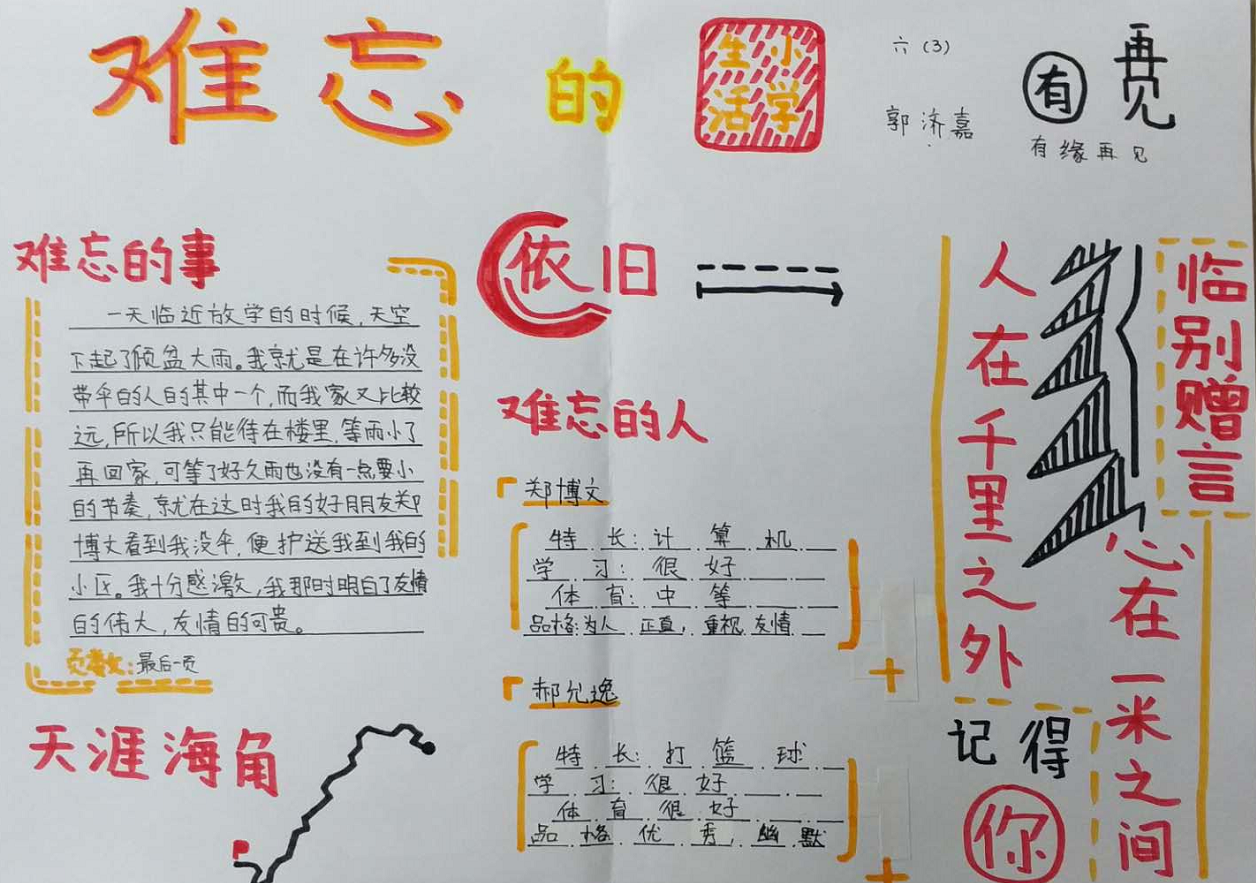 难忘的
小学
生活
六(3)
郭济嘉
有
再见
有缘再见
难忘的事
一天临近放学的时候,天空
下起了倾盆大雨。我就是在许多没
带伞的人的其中一个,而我家又比较
远,所以我只能待在楼里,等雨小了
再回家,可等了好久雨也没有一点要小
的节奏,就在这时我的好朋友郑
博文看到我没伞,便护送我到我的
小区。我十分感激,我那时明白了友情
的伟大,友情的可贵。
页数:最后一页
天涯海角
依旧
难忘的人
郑博文
特长:计算机
学习:很好
体育:中等
品格:为人正直,重视友情
郝允逸
特长:打篮球
学习:很好
体育很好
品格优秀,幽默
临别赠言
人在千里之外
心在一米之间
记得
你